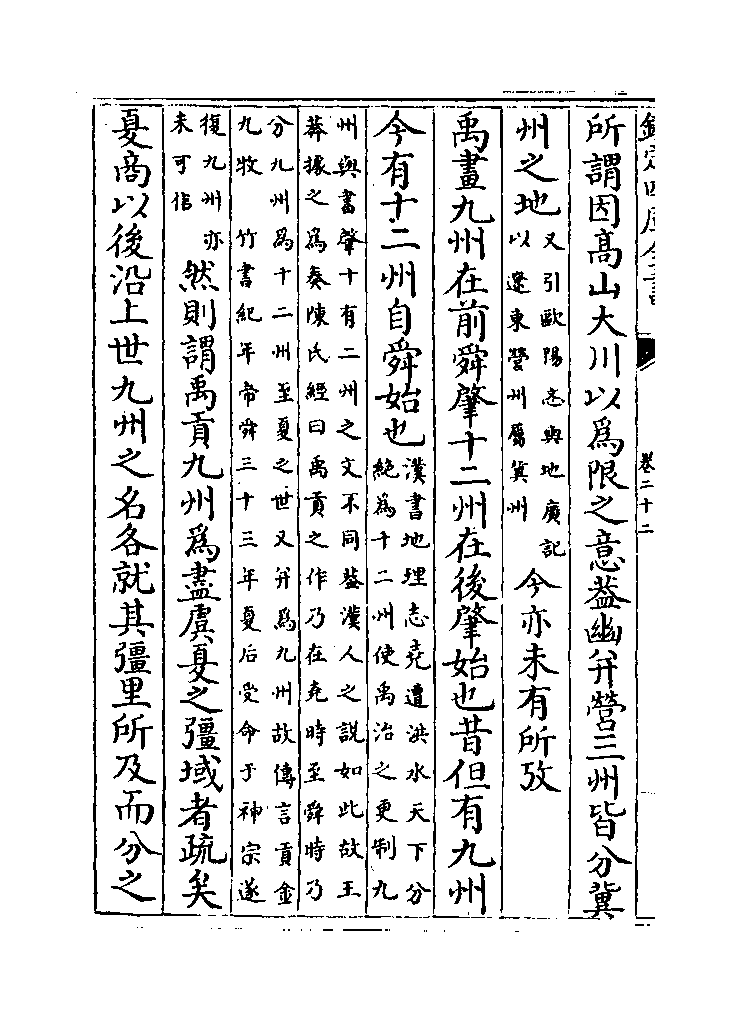 欽定四庫全書 卷二十二
所謂因髙山大川以為限之意葢幽并營三州皆分冀
州之地又引歐陽忞輿地廣記以遼東營州屬冀州今亦未有所攷
禹畫九州在前舜肇十二州在後肇始也昔但有九州
今有十二州自舜始也漢書地理志堯遭洪水天下分絶為十二州使禹治之更制九
州與書肇十有二州之文不同葢漢人之説如此故王莽據之為奏陳氏經曰禹貢之作乃在堯時至舜時乃
分九州為十二州至夏之世又并為九州故傳言貢金九牧 竹書紀年帝舜三十三年夏后受命于神宗遂
復九州亦未可信然則謂禹貢九州為盡虞夏之疆域者疏矣
夏商以後沿上世九州之名各就其疆里所及而分之